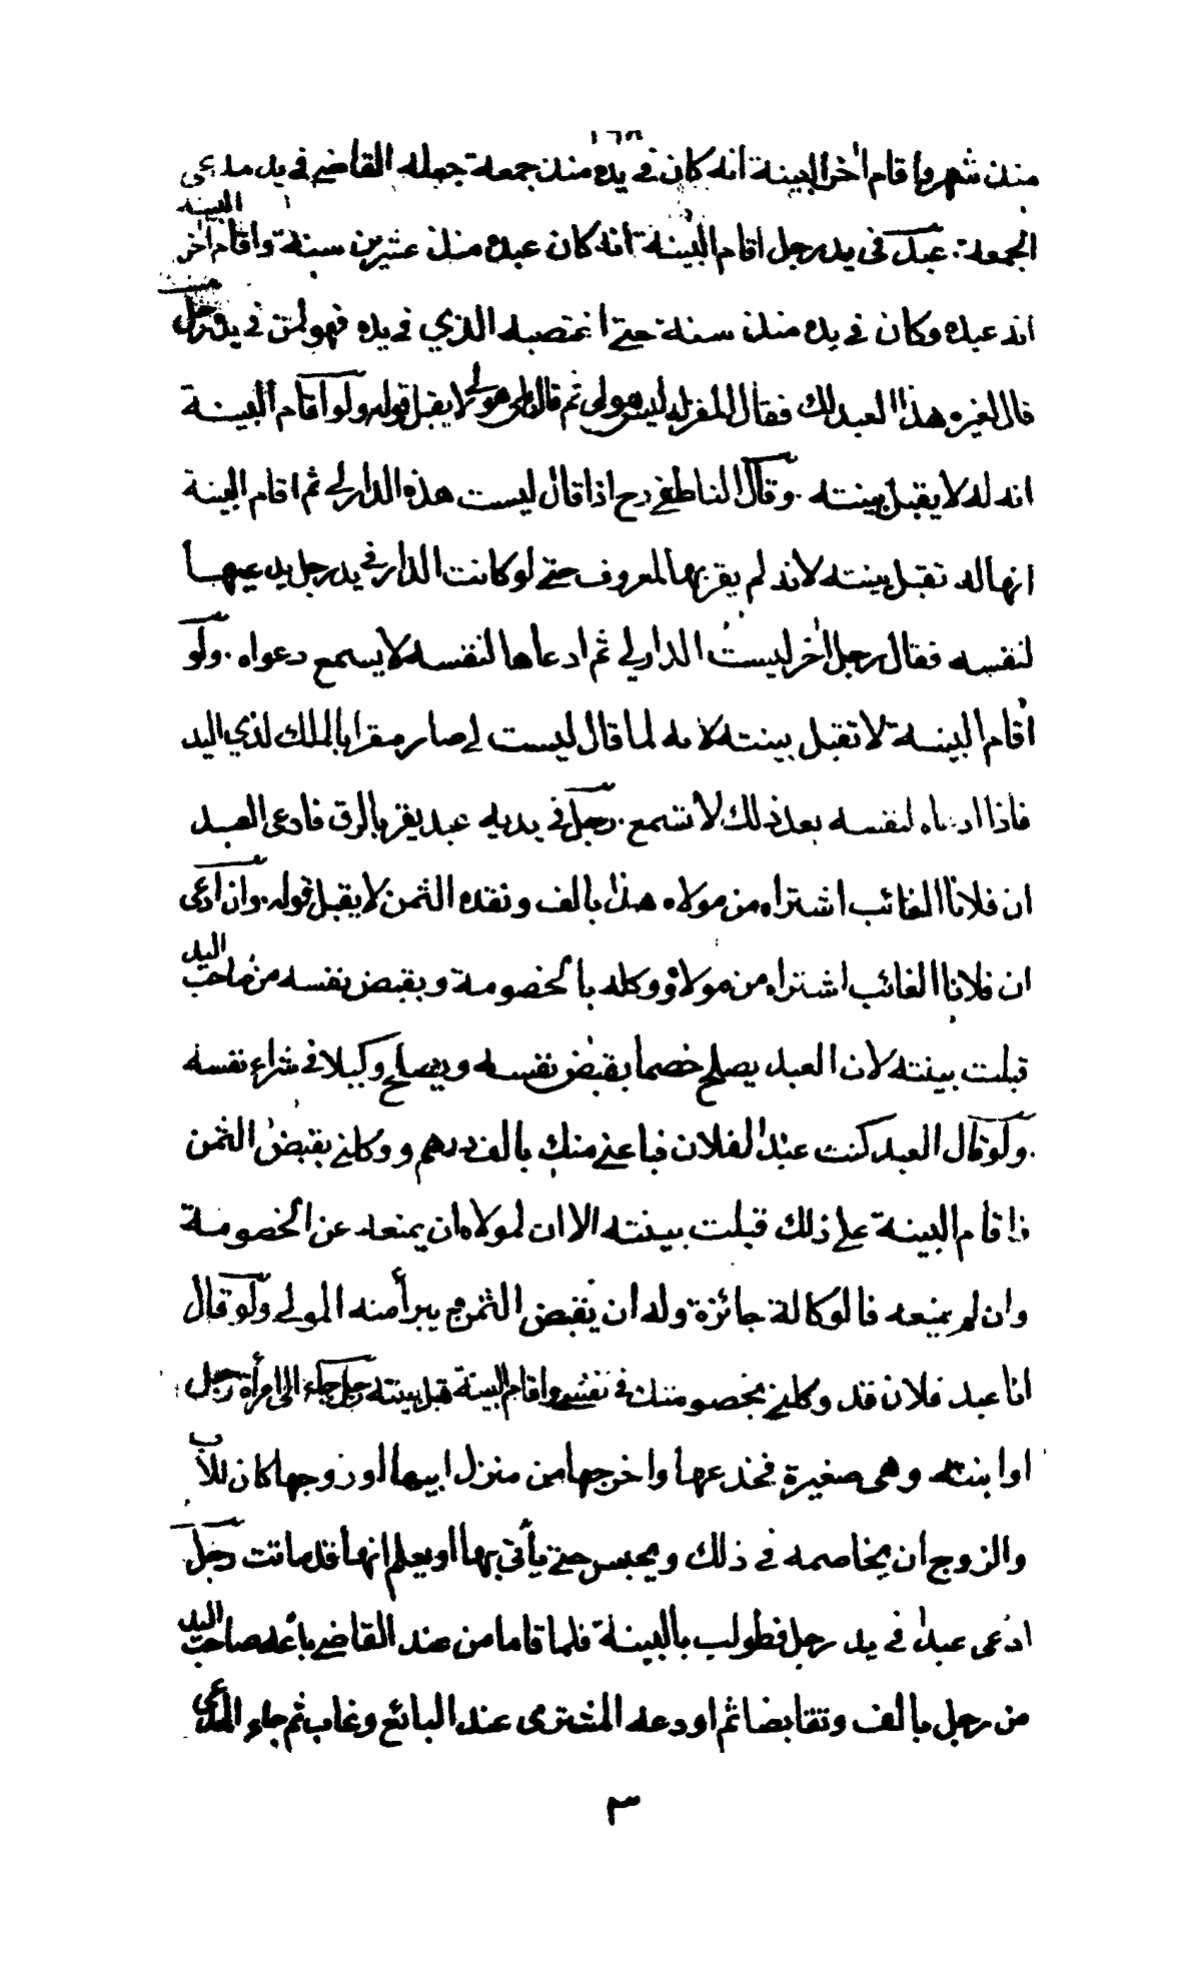 ١٦٨
منذ شهر واقام آخر البينة انه كان في يده منذ جمعة جعله القاضي في يد مدعى
الجمعة. عبد في يد رجل اقام البينة انه كان عبده منذ عشرين سنة واقام آخر البينة
انه عبده وكان في يده منذ سنة حتى اغتصبه الذي في يده فهو لمن في يده رجل
قال لغيره هذا العبد لك فقال المقر له ليس هو لي ثم قال بلى هو لي لا يقبل قوله ولو اقام البينة
انه له لا يقبل بينته. وقال الناطفي رح اذا قال ليست هذه الدار لي ثم اقام البينة
انها له تقبل بينته لانه لم يقر بها لمعروف حتى لو كانت الدار في يد رجل يدعيها
لنفسه فقال رجل اخر ليست الدار لي ثم ادعاها لنفسه لا يسمع دعواه. ولو
اقام البينة لا تقبل بينته لانه لما قال ليست لي صار مقرا بالملك لذي اليد
فاذا ادعاه لنفسه بعد ذلك لا تسمع. رجل في يديه عبد يقر بالرق فادعى العبد
ان فلانا الغائب اشتراه من مولاه هذا بالف ونقده الثمن لا يقبل قوله. وان ادعى
ان فلانا الغائب اشتراه من مولاه ووكله بالخصومة وبقبض نفسه من صاحب اليد
قبلت بينته لان العبد يصلح خصما بقبض نفسه ويصلح وكيلا في شراء نفسه
. ولو قال العبد كنت عبدا لفلان فباعني منك بالف درهم ووكلني بقبض الثمن
فاقام البينة على ذلك قبلت بينته الا ان لمولاه ان يمنعه عن الخصومة
وان لم يمنعه فالوكالة جائزة وله ان يقبض الثمن ويبرأ منه المولى ولو قال
انا عبد فلان قد وكلني بخصومتك في نفسي واقام البينة قبل بينته رجل جاء الى امرأة رجل
او ابنته وهي صغيرة فخدعها واخرجها من منزل ابيها او زوجها كان للاب
والزوج ان يخاصمه في ذلك ويحبس حتى يأتي بها او يعلم انها قد ماتت رجل
ادعى عبدا في يد رجل فطولب بالبينة فلما قاما من عند القاضي باعه صاحب اليد
من رجل بالف وتقابضا ثم اودعه المشترى عند البائع وغاب ثم جاء المدعى
٣